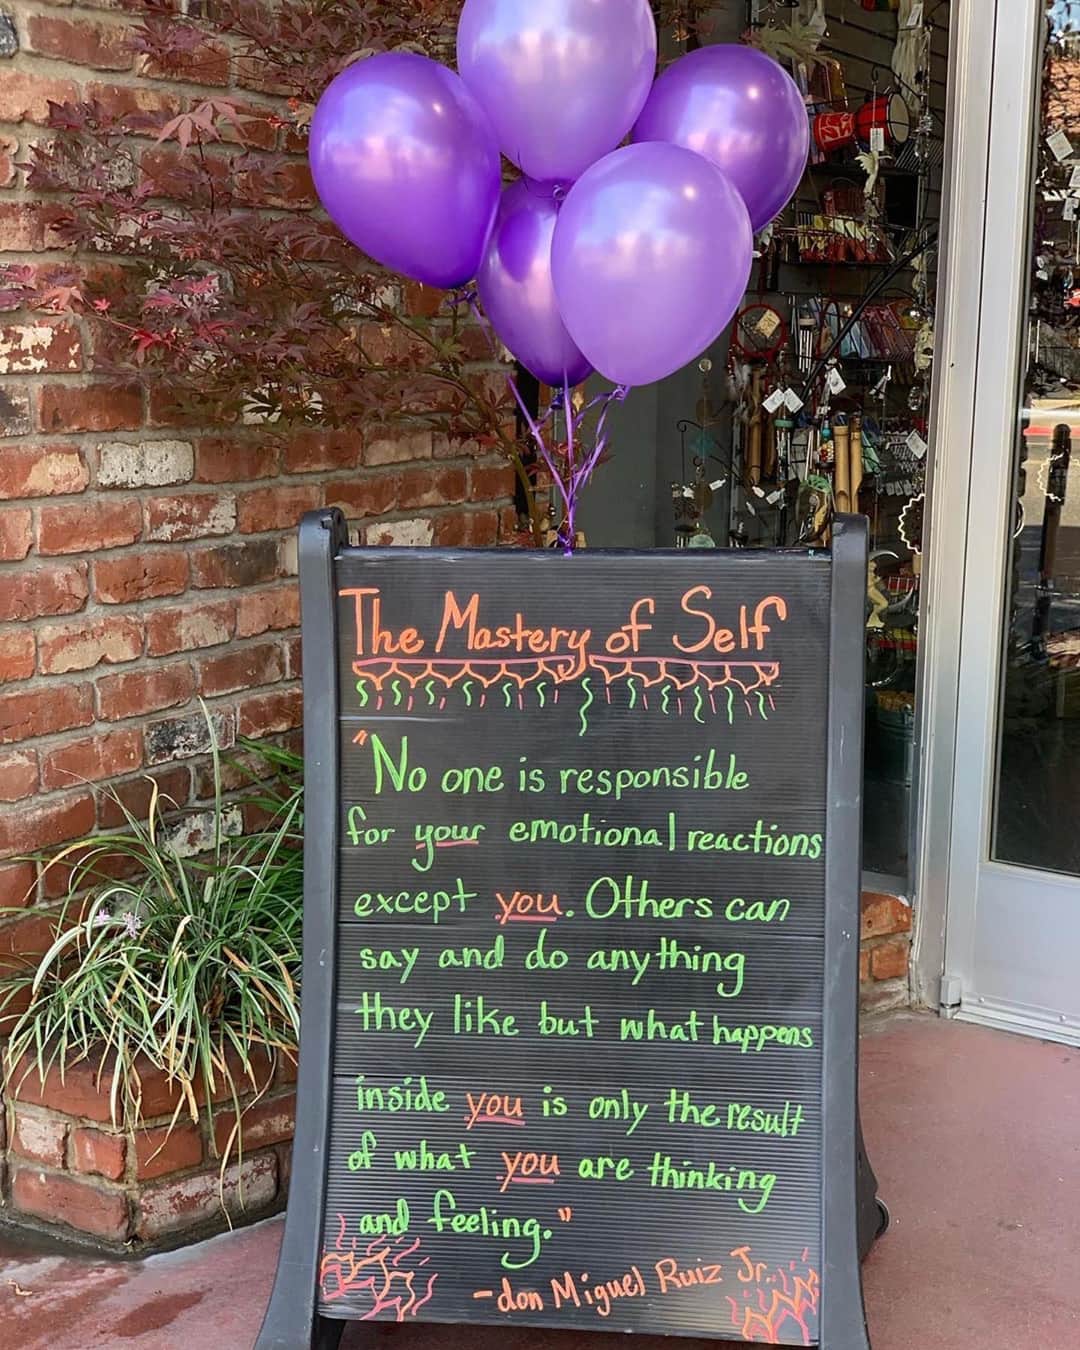 The Mastery of Self
"No one is responsible
for your emotional reactions
except you. Others can
say and do anything
they like but what happens
inside you is only the result
of what you are thinking
and feeling."
-don Miguel Ruiz Jr.